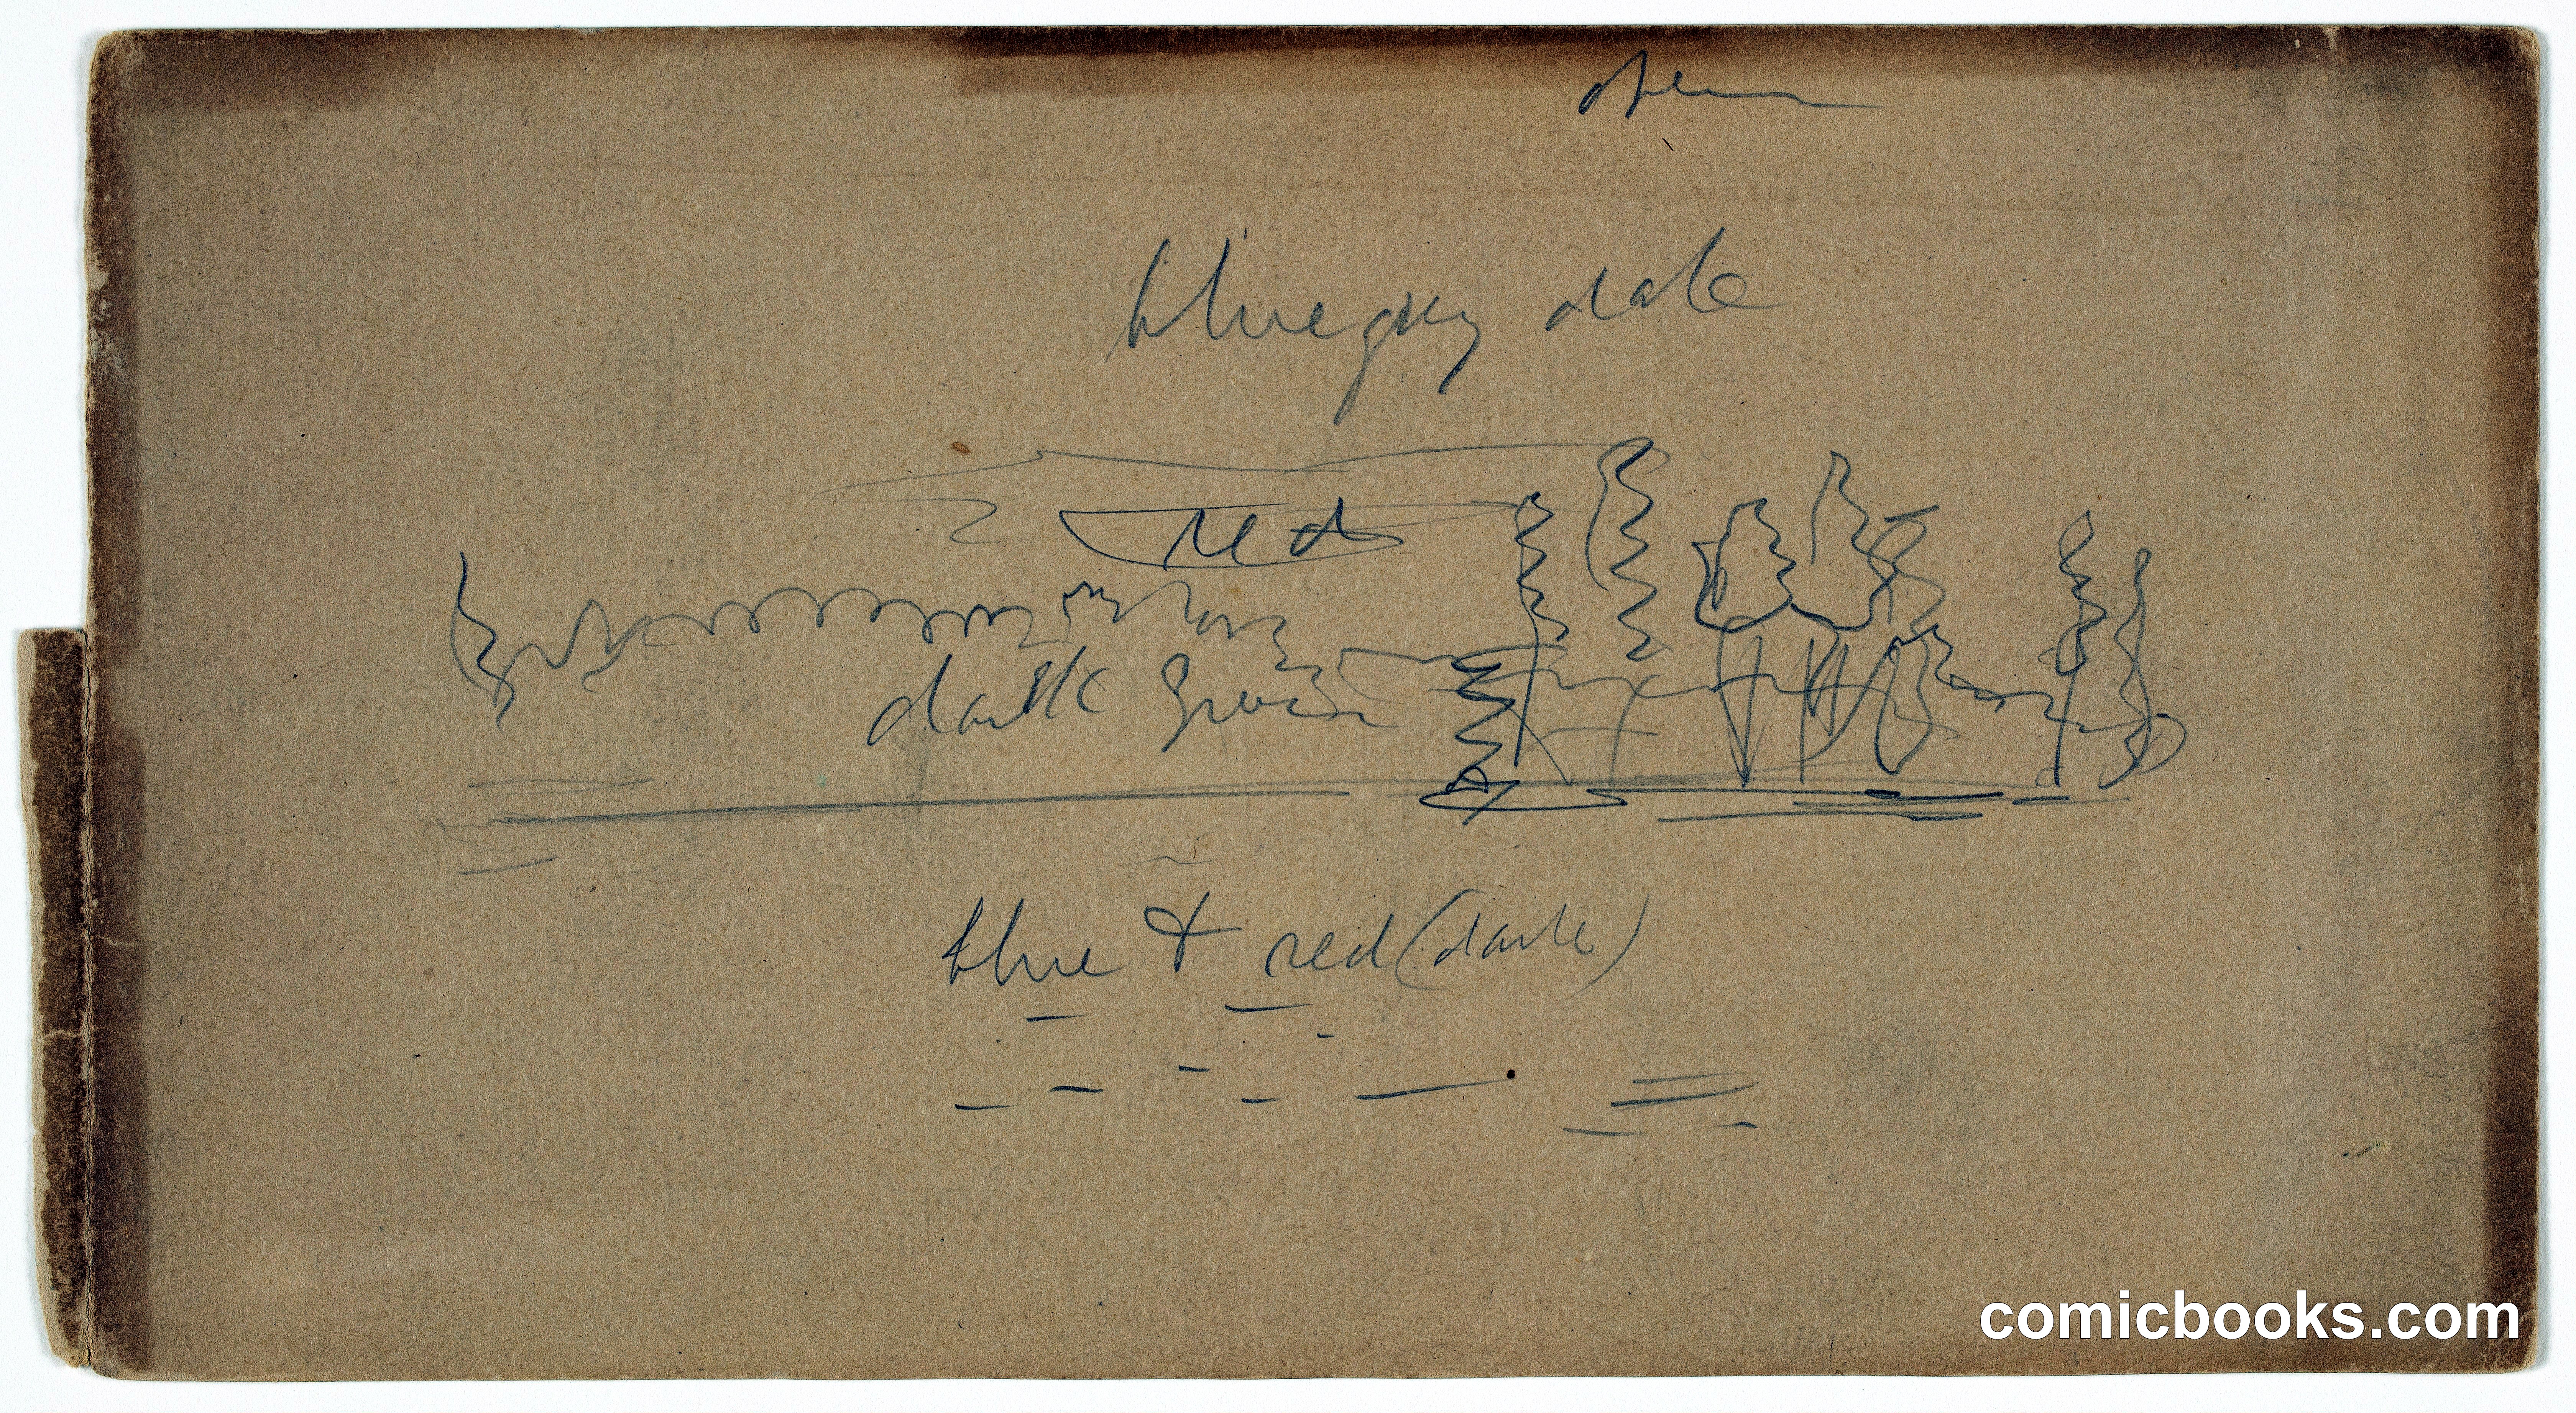 open
blue grey
red
dark green
blue & red (dark)
comicbooks.com